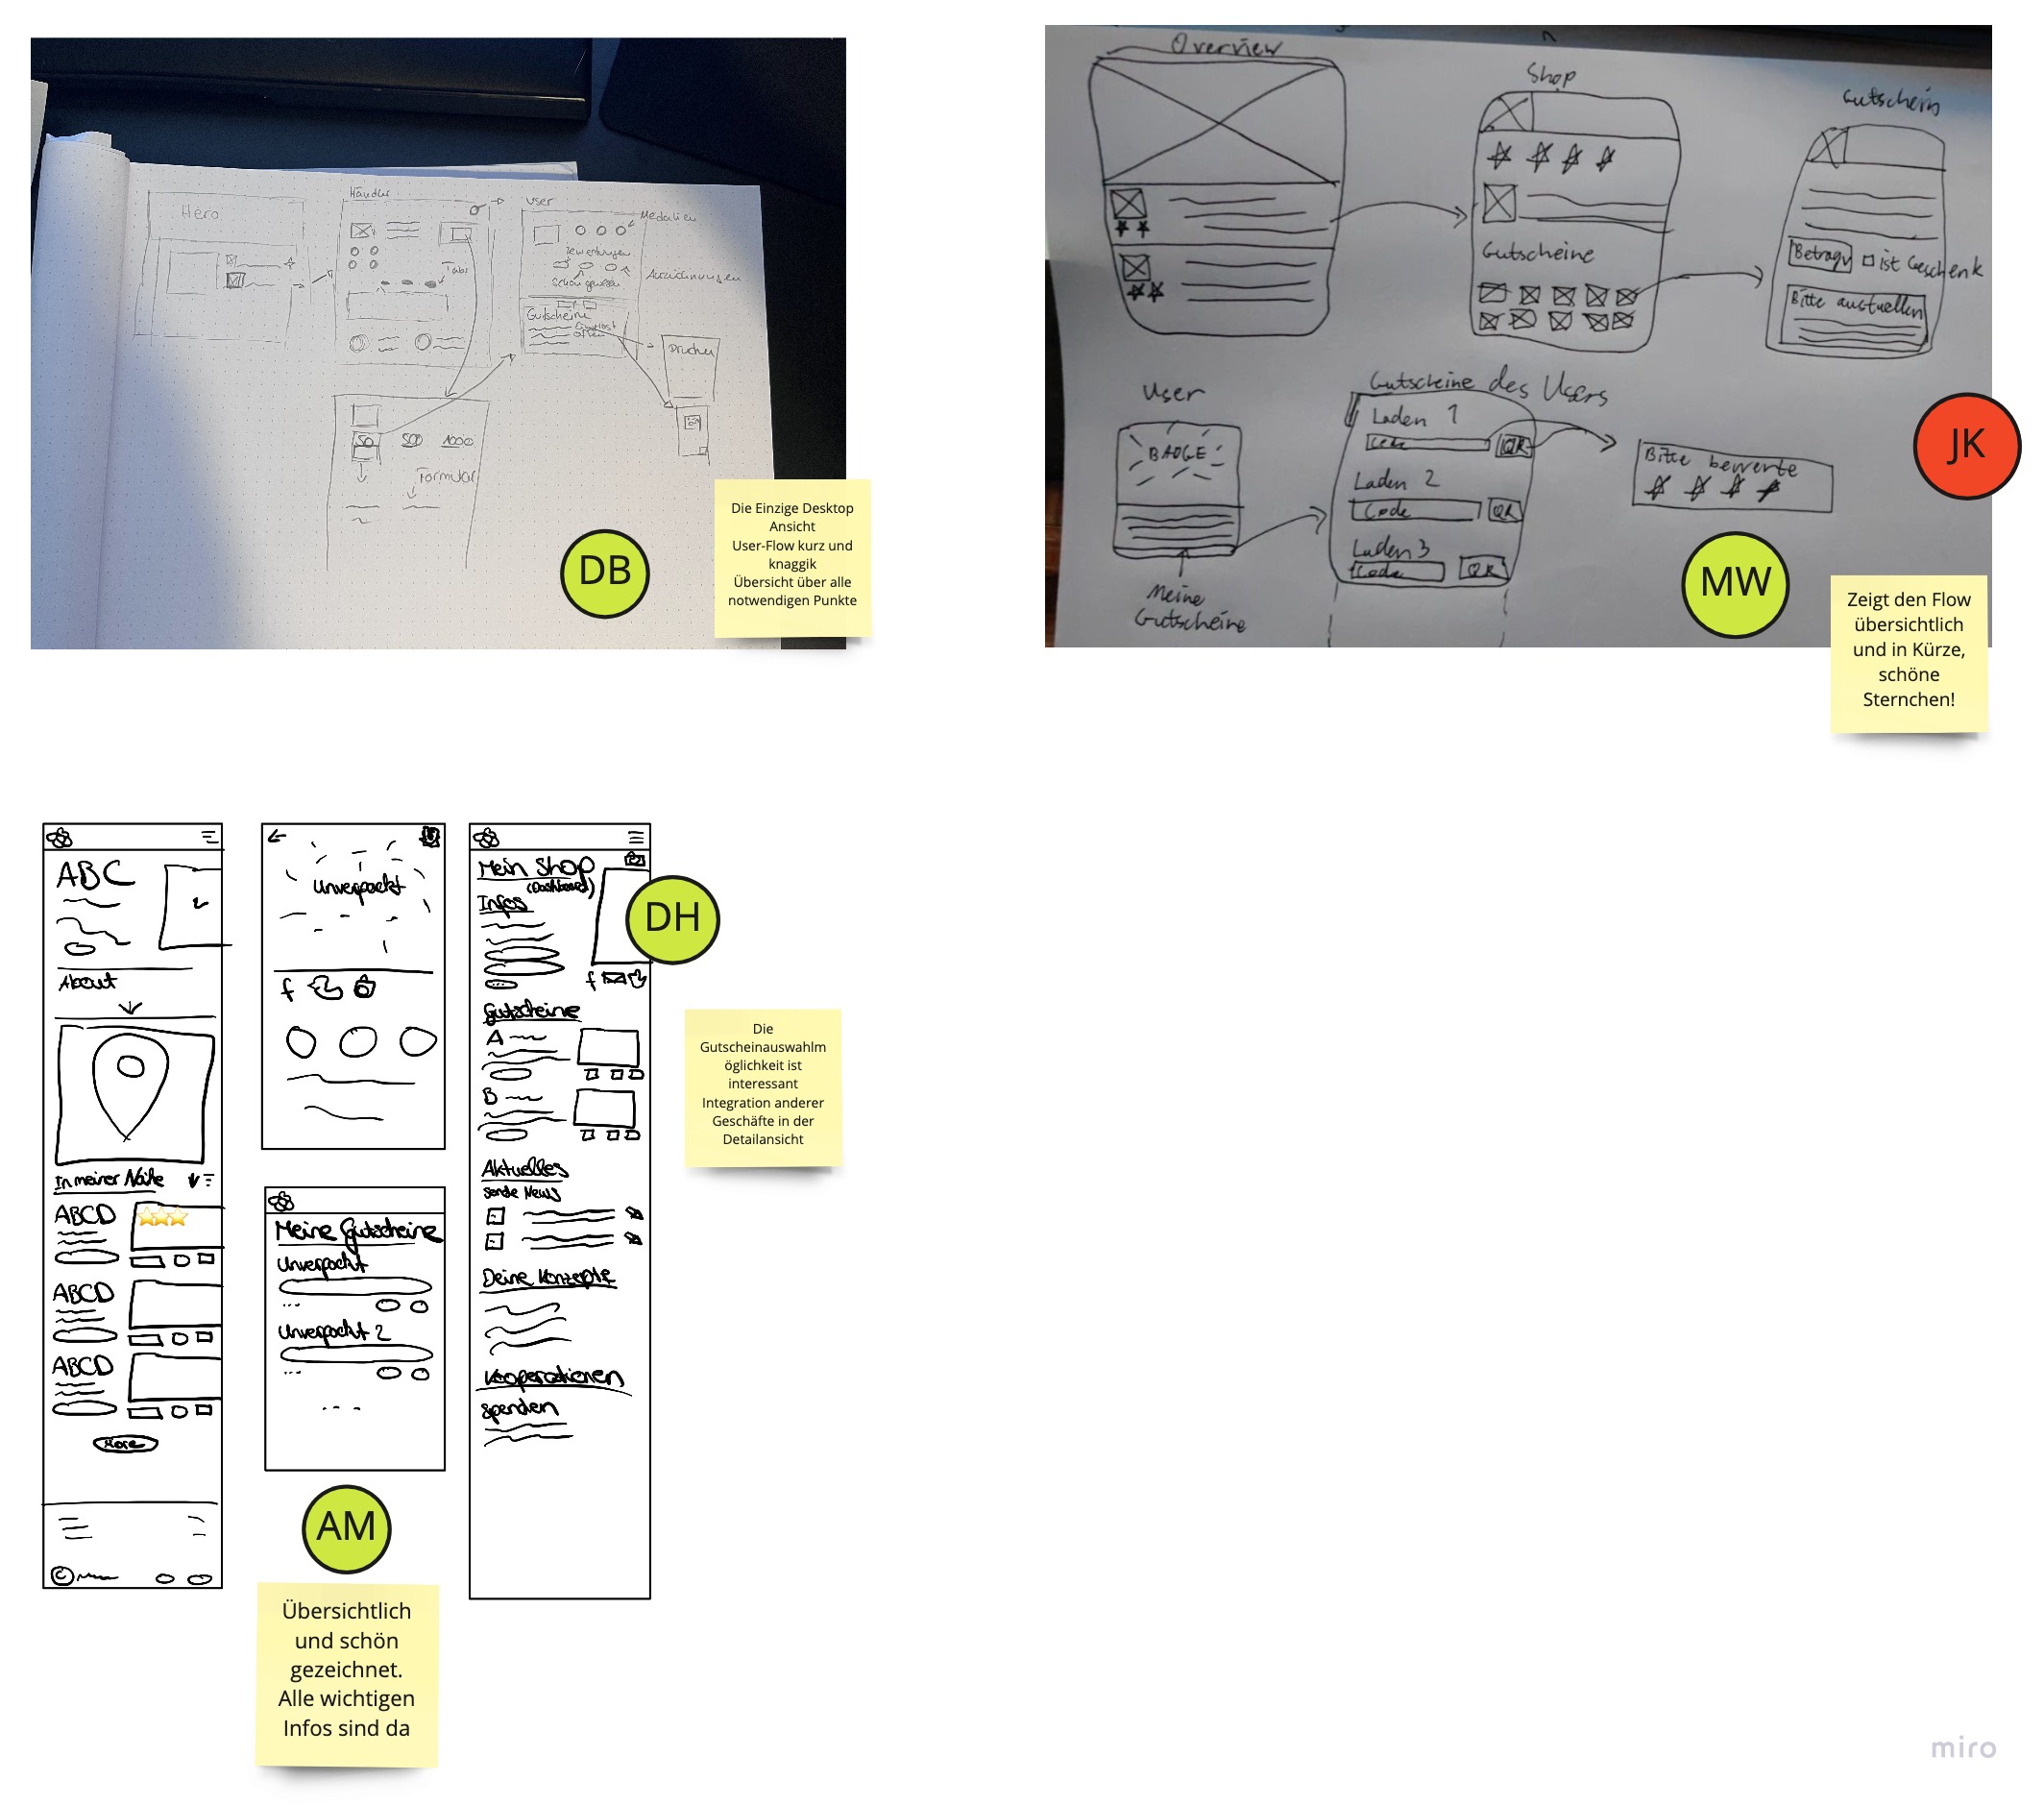 Hero
Händler
Tabs
User
Medaillen
Bewertungen
Auszeichnungen
Gutscheine
Drucken
50 500 1000
Formular
DB
Die Einzige Desktop
Ansicht
User-Flow kurz und
knaggik
Übersicht über alle
notwendigen Punkte
Overview
Shop
Gutscheine
Gutschein
Betrag
ist Geschenk
Bitte ausfüllen
User
BADGE
Meine
Gutscheine
Gutscheine des Users
Laden 1
Code QR
Laden 2
Code QR
Laden 3
Code QR
Bitte bewerte
JK
MW
Zeigt den Flow
übersichtlich
und in Kürze,
schöne
Sternchen!
ABC
About
In meiner Nähe
ABCD
ABCD
ABCD
More
©
Unverpackt
f
Meine Gutscheine
Unverpackt
Unverpackt 2
AM
Übersichtlich
und schön
gezeichnet.
Alle wichtigen
Infos sind da
Mein Shop
(Dashboard)
Infos
f
Gutscheine
A
B
Aktuelles
sende News
Deine Konzepte
Kooperationen
Spenden
DH
Die
Gutscheinauswahlm
öglichkeit ist
interessant
Integration anderer
Geschäfte in der
Detailansicht
miro